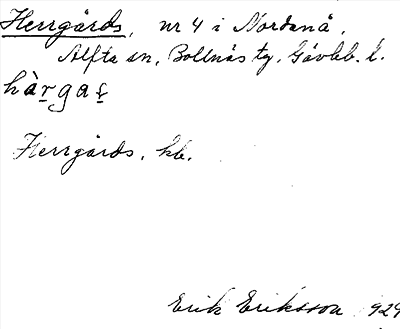 Herrgårds, nr 4 i Nordanå,
Alfta sn, Bollnäs tg, Gävleb. l.
hàr̲gas̲
Herrgårds, kb.
Erik Eriksson 1929